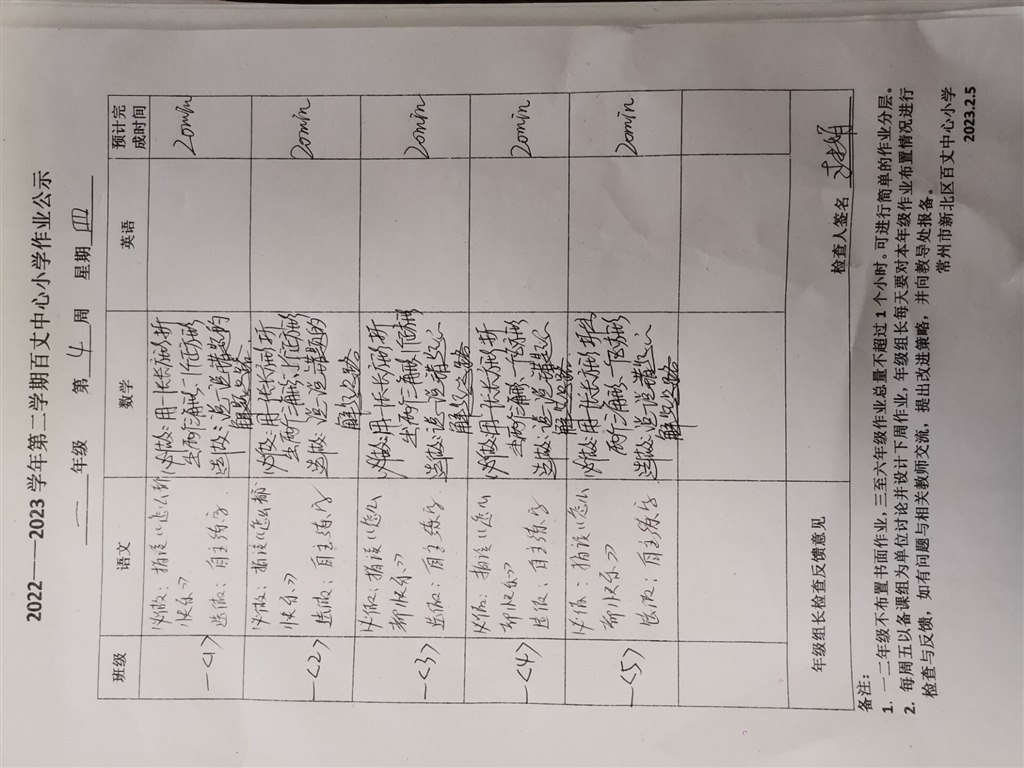 2022——2023学年第二学期百丈中心小学作业公示
一 年级 第 4 周 星期 四
班级 语文 数学 英语 预计完成时间
一<1>
必做：指读儿怎么
快乐
选做：自主练字
必做：用一长长方形折
出两个三角形、一个正方形
选做：说一说错题的
解题思路
20min
一<2>
必做：指读儿怎么都
快乐
选做：自主练字
必做：用一长长方形折
出两个三角形、一个正方形
选做：说一说错题的
解题思路
20min
一<3>
必做：指读儿怎么
都快乐
选做：自主练字
必做：用一长长方形折
出两个三角形、一个正方形
选做：说一说错题心
解题思路
20min
一<4>
必做：指读儿怎么
都快乐
选做：自主练字
必做：用一长长方形折
出两个三角形、一个正方形
选做：说一说错题心
解题思路
20min
一<5>
必做：指读儿怎么
都快乐
选做：自主练字
必做：用一长长方形折出
两个三角形、一个正方形
选做：说一说错题心
解题思路
20min
年级组长检查反馈意见 检查人签名
备注：
1. 一二年级不布置书面作业，三至六年级作业总量不超过1个小时。可进行简单的作业分层。
2. 每周五以备课组为单位讨论并设计下周作业，年级组长每天要对本年级作业布置情况进行
检查与反馈，如有问题与相关教师交流，提出改进策略，并向教导处报备。
常州市新北区百丈中心小学
2023.2.5